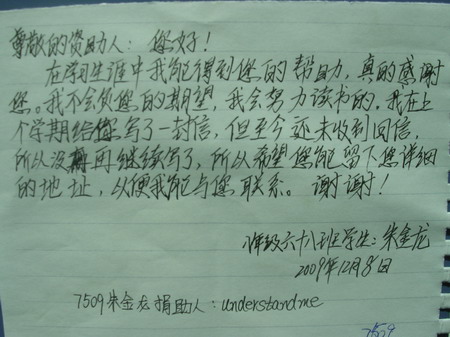 尊敬的资助人：您好！
在学习生涯中我能得到您的帮助，真的感谢
您。我不会负您的期望，我会努力读书的，我在上
个学期给您写了一封信，但至今还未收到回信，
所以没再继续写了，所以希望您能留下您详细
的地址，以便我能与您联系。谢谢！
八年级六十八班学生：朱金龙
2009年12月8日
7509朱金龙捐助人：understandme
7509